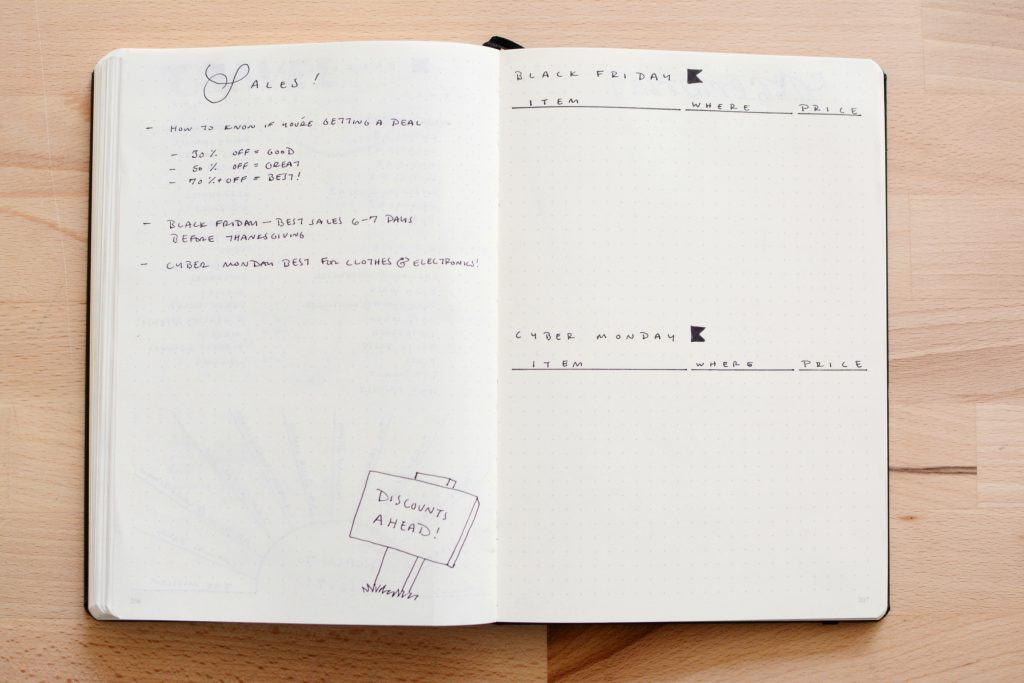 SALES!
- HOW TO KNOW IF YOU'RE GETTING A DEAL
- 30% OFF = GOOD
- 50% OFF = GREAT
- 70%+ OFF = BEST!
- BLACK FRIDAY - BEST SALES 6-7 DAYS
BEFORE THANKSGIVING
- CYBER MONDAY BEST FOR CLOTHES & ELECTRONICS!
DISCOUNTS
AHEAD!
BLACK FRIDAY
ITEM WHERE PRICE
CYBER MONDAY
ITEM WHERE PRICE